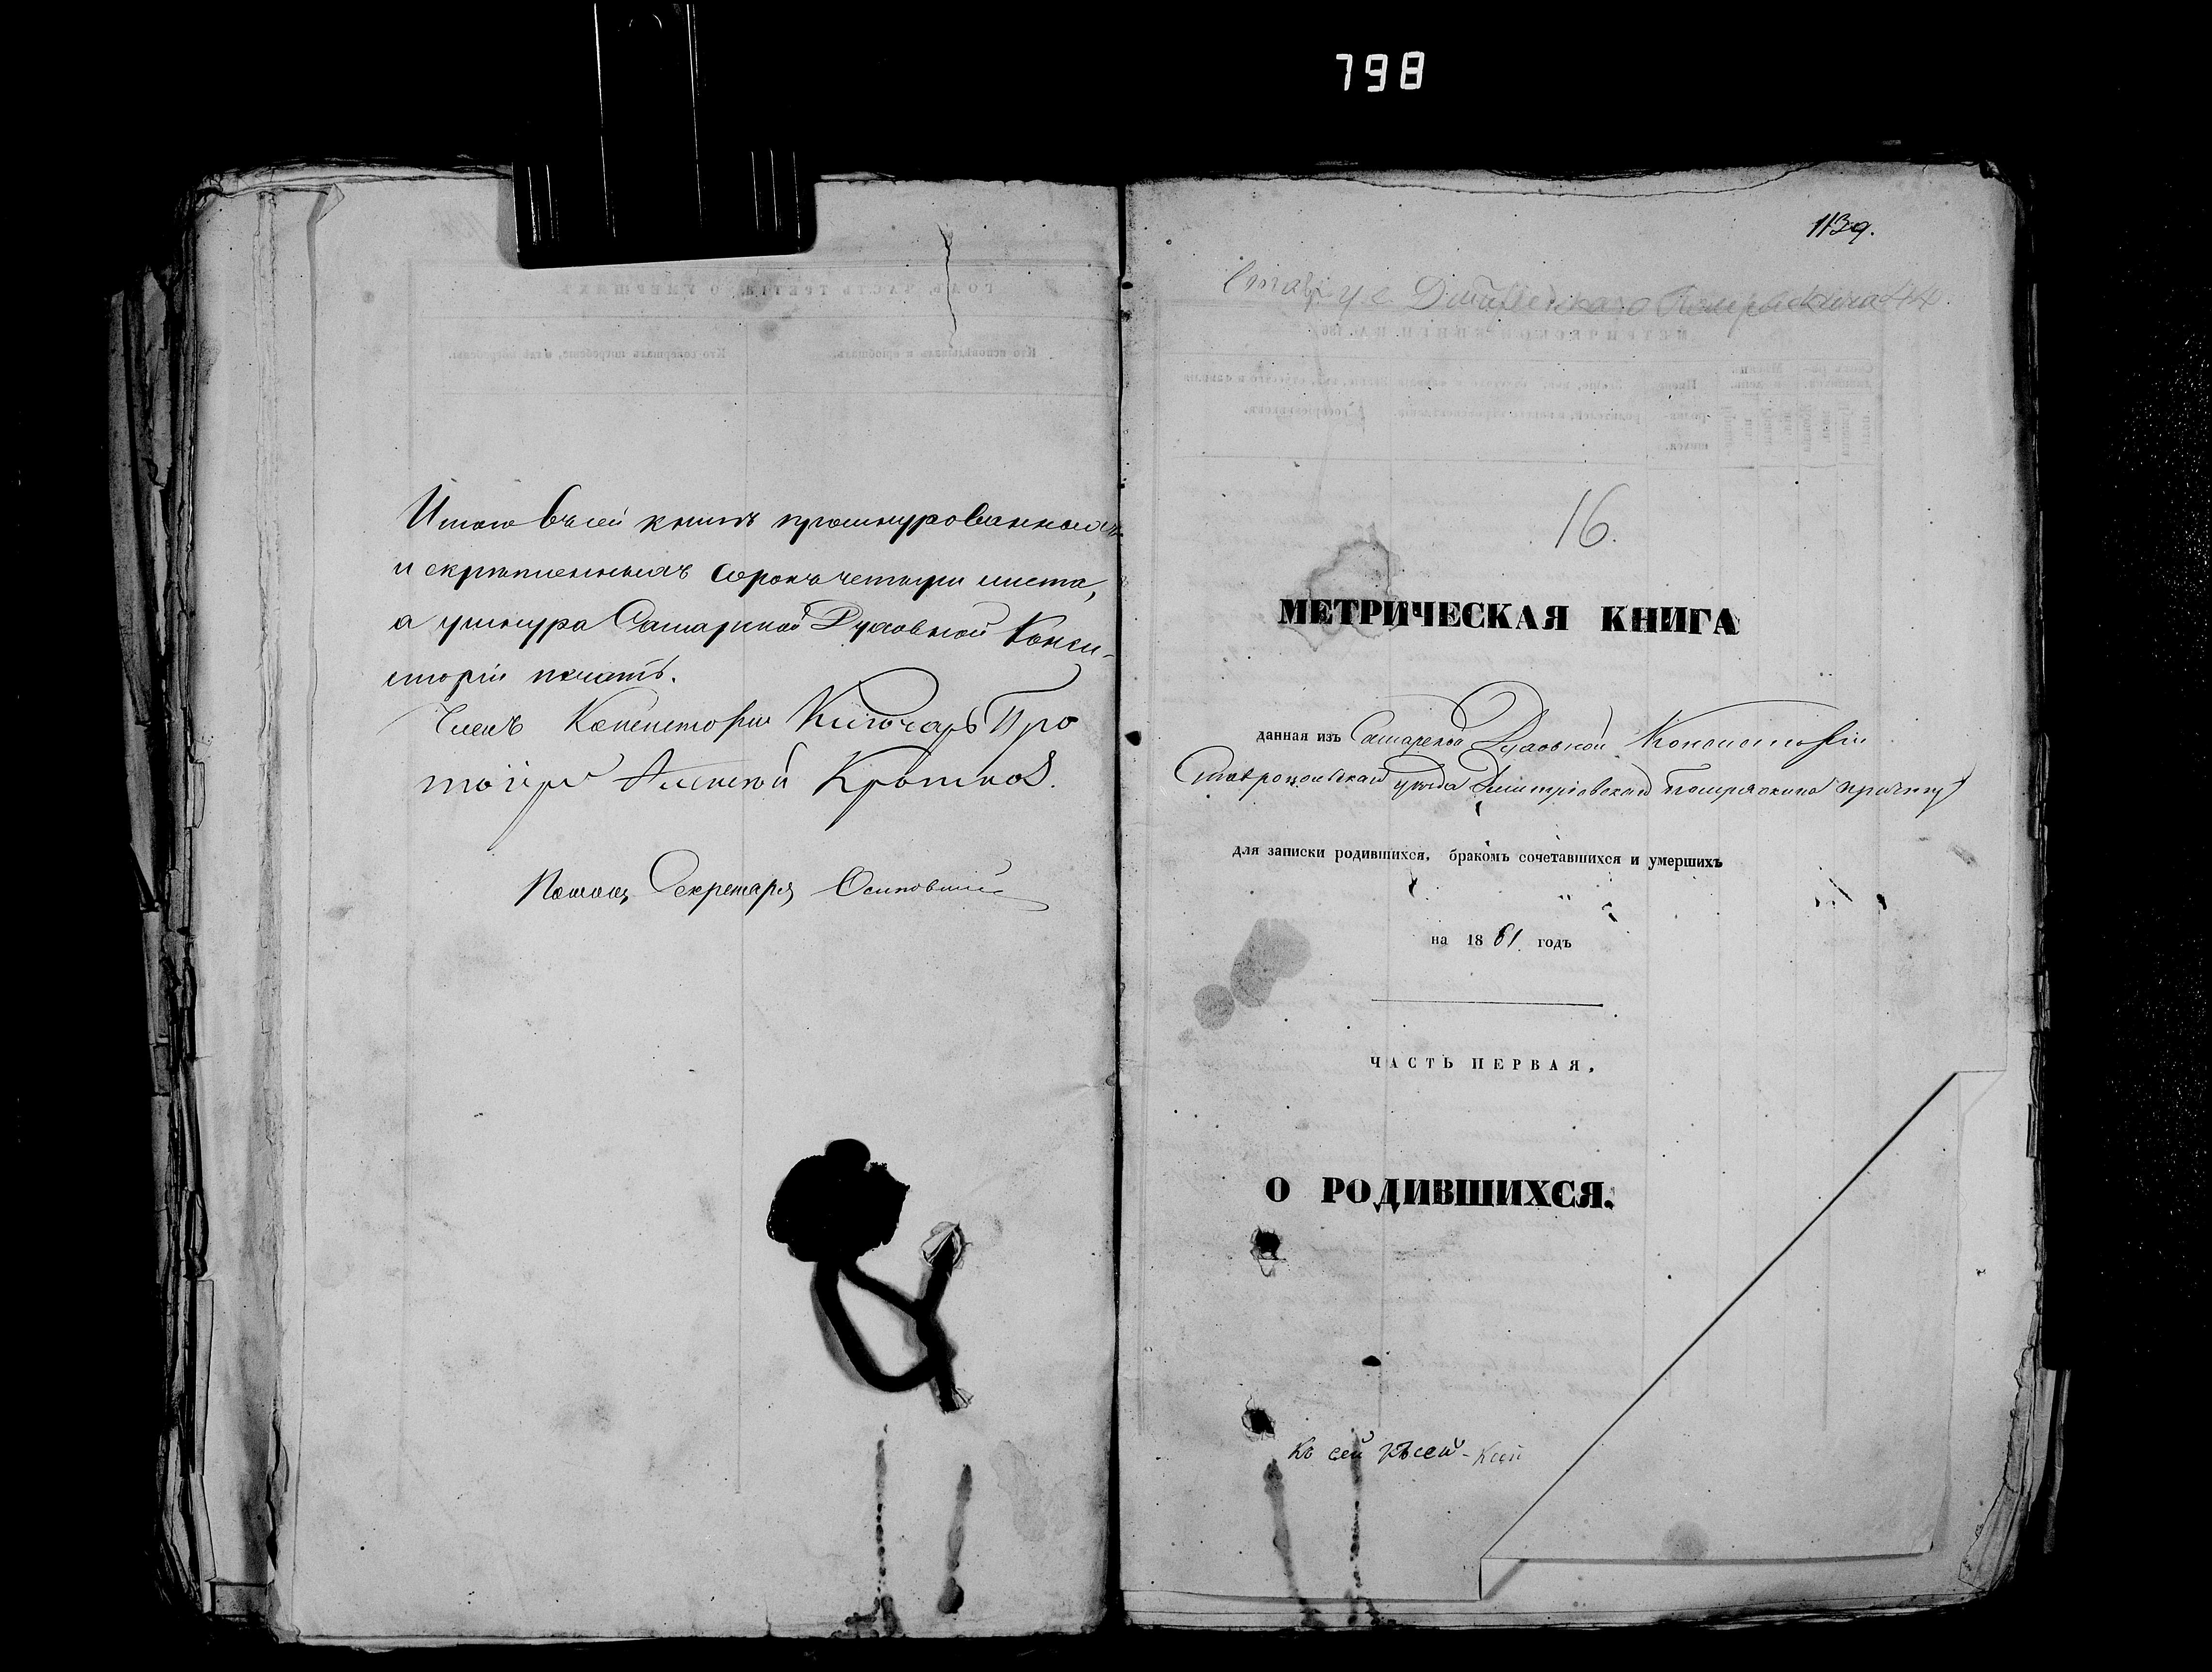 798
Итого въ сей книгѣ прошнурованныхъ
и скрѣпленныхъ сорокъ четыре листа,
а у шнура Самарской Духовной Конси-
сторіи печать.
Членъ Консисторіи Ключарь Про
тоіерей Алексѣй Крыловъ.
Помощ. Секретаря
1139.
Ставр. у. с. Дмитріевскаго Помряскина 44.
16.
МЕТРИЧЕСКАЯ КНИГА
данная изъ Самарской Духовной Консисторіи
Ставропольскаго уѣзда Дмитріевскаго Помряскина причту
для записки родившихся, бракомъ сочетавшихся и умершихъ
на 1861 годъ
ЧАСТЬ ПЕРВАЯ,
О РОДИВШИХСЯ.
Къ сей Къ сей - Ксей